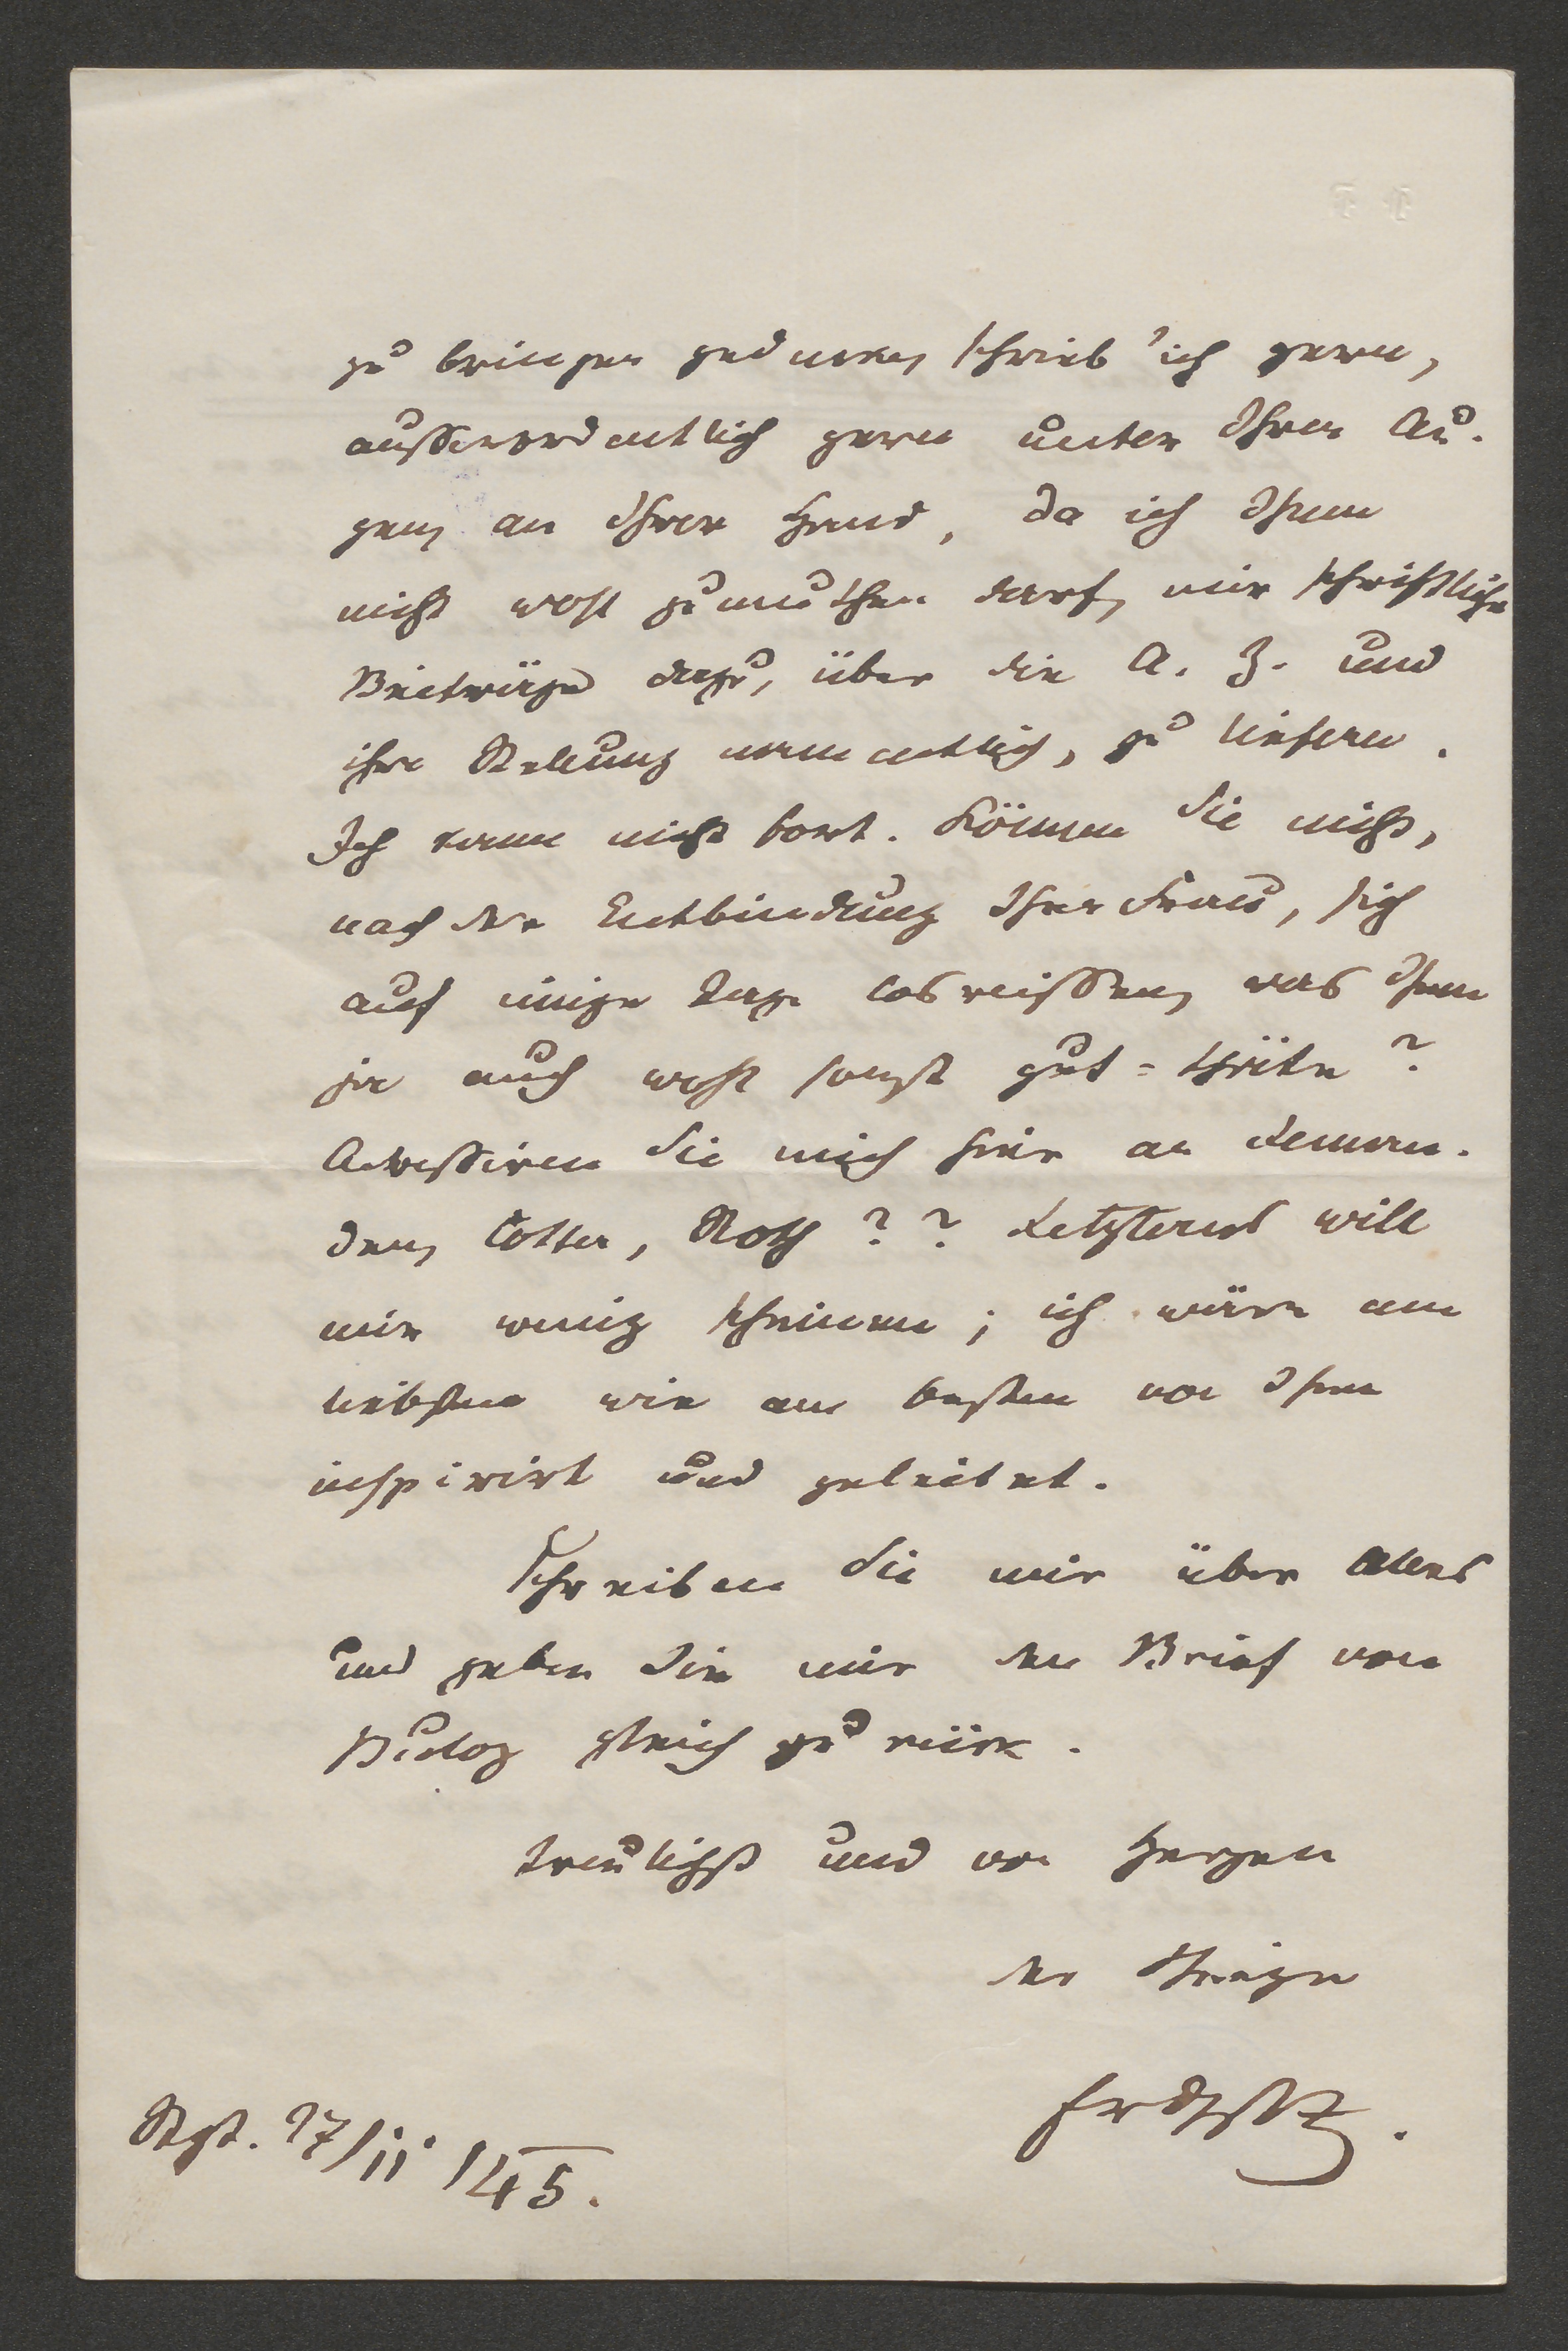 zu bringen gedenke, schrieb' ich gern,
außerordentlich gern unter Ihren Au-
gen, an Ihrer Hand, da ich Ihnen
nicht wohl zumuthen darf, mir schriftliche
Beiträge dazu, über die A. Z. und
ihre Stellung namentlich, zu liefern.
Ich kann nicht fort. Können Sie nicht,
nach der Entbindung Ihrer Frau, sich
auf einige Tage losreissen, was Ihnen
ja auch wohl sonst gut-thäte?
Adressiren Sie mich hier an Jeman-
den, Cotta, Roth?? Letzteres will
mir wenig scheinen; ich wäre am
liebsten wie am besten von Ihnen
inspirirt und geleitet.
Schreiben Sie mir über Alles
und geben Sie mir den Brief von
Buloz gleich zurück.
Treulichst und von Herzen
der Ihrige
FrDglstdt.
Stgt. 27/11 / 45.